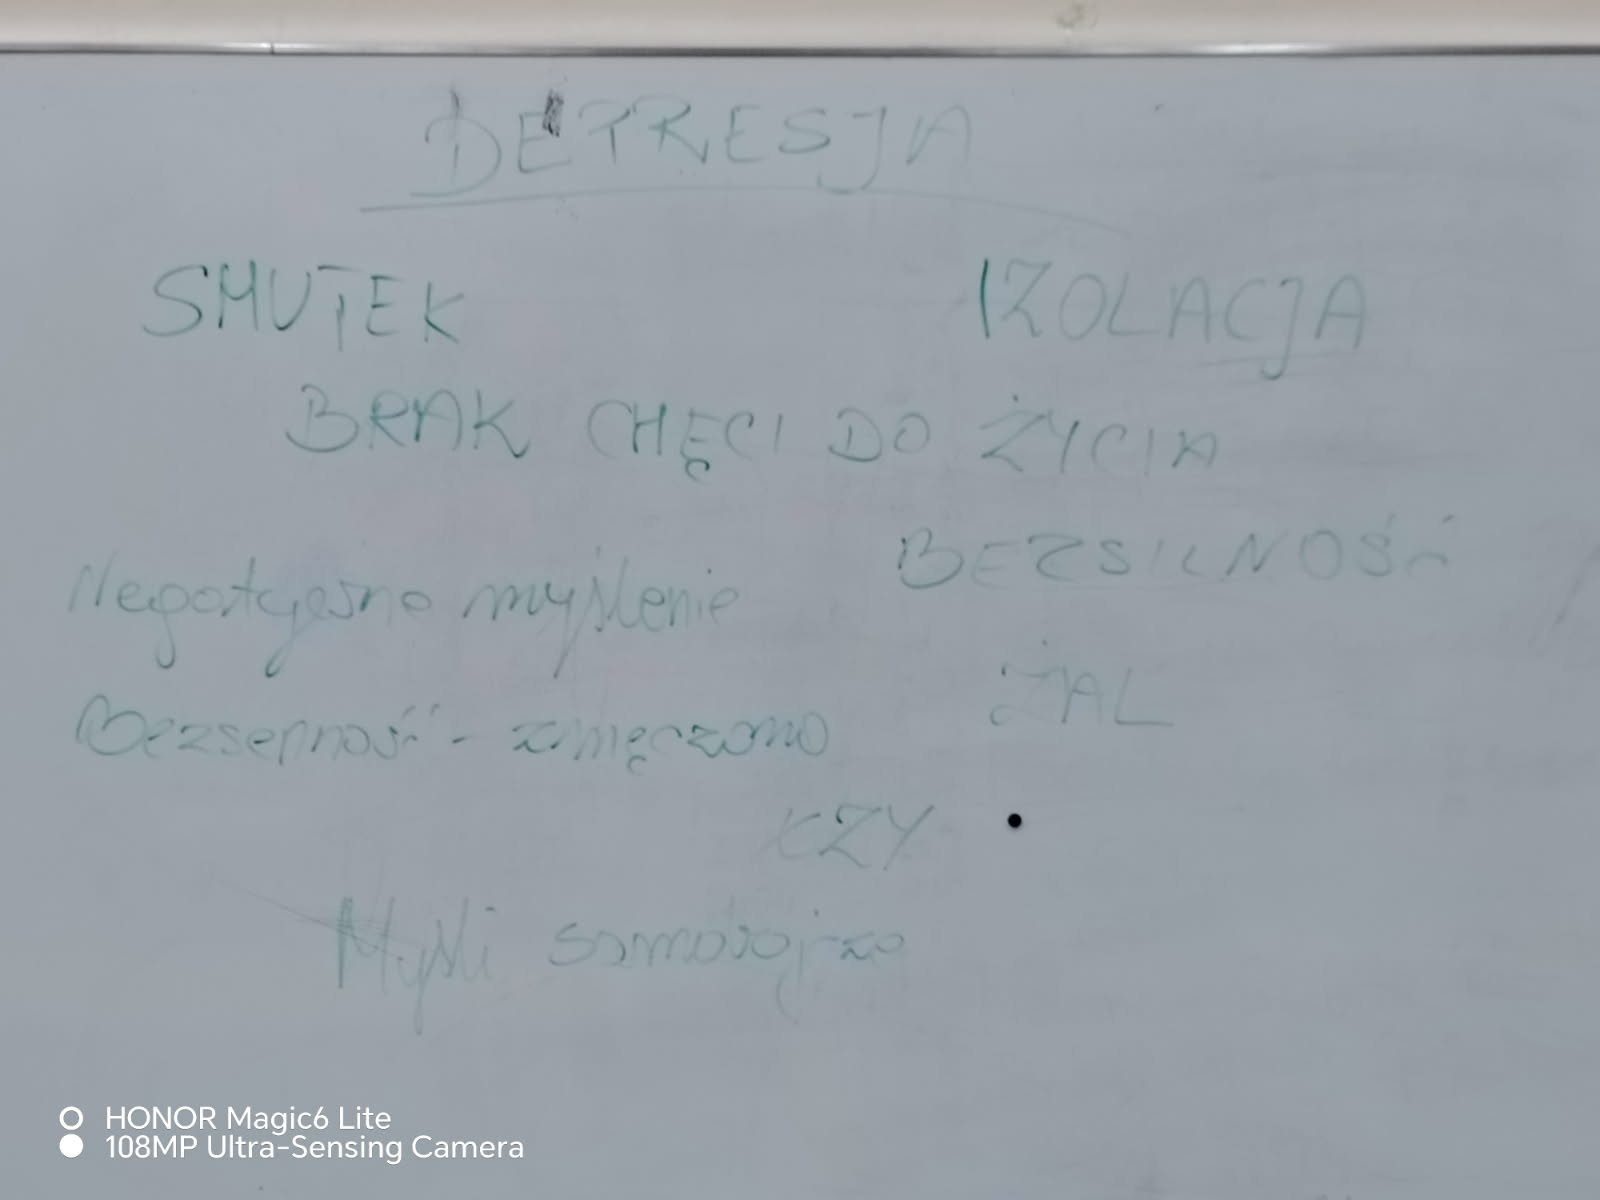 DEPRESJA
SMUTEK IZOLACJA
BRAK CHĘCI DO ŻYCIA
BEZSILNOŚĆ
Negatywne myślenie
ŻAL
Bezsenność - zmęczono
ŁZY
Myśli
HONOR Magic6 Lite
108MP Ultra-Sensing Camera